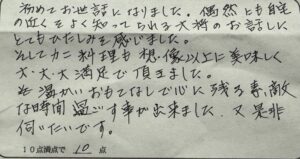 初めてお世話になりました。偶然とも自宅
の近くをよく知っておられる大将のお話しに
とてもひたしみを感じました。
そしてカニ料理も想像以上に美味しく
大・大・大満足で頂きました。
温かいおもてなしで心に残る素敵
な時間過ごす事が出来ました。又是非
伺いたいです。
10点満点で 10 点